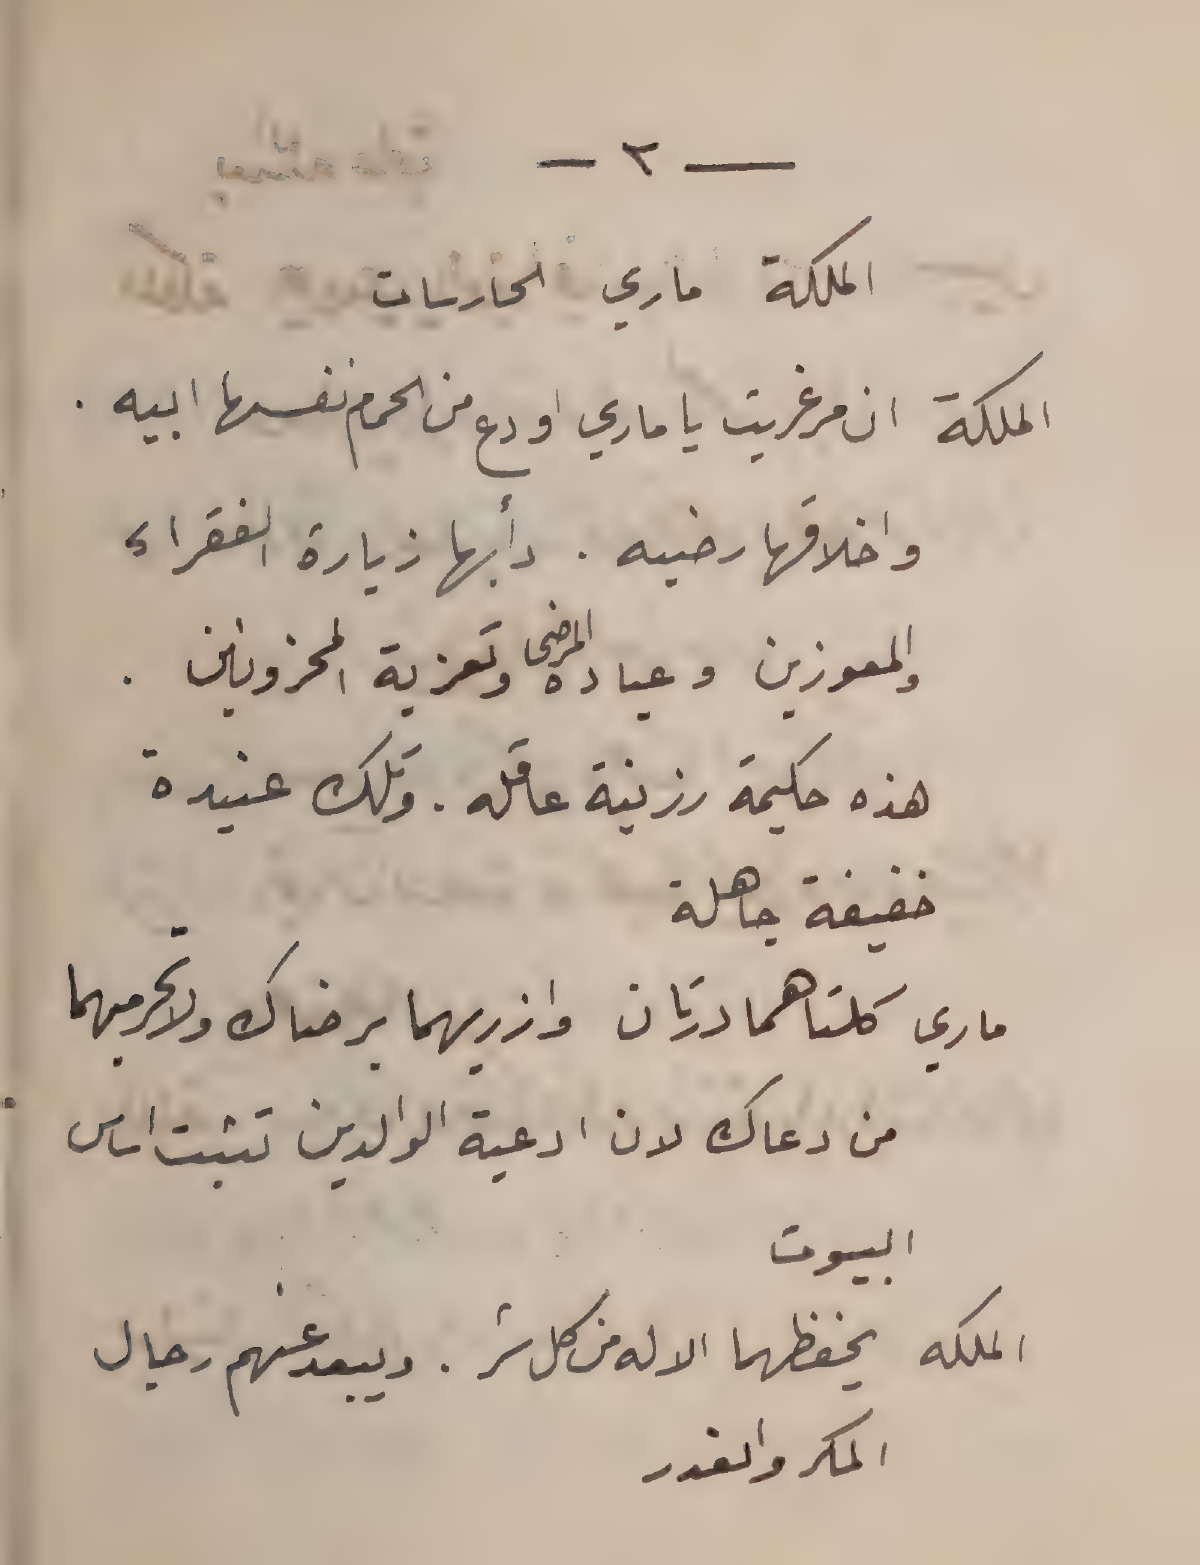 — ٢ —
الملكة ماري الحارسات
الملكة ان مرغريت يا ماري اودع من الحمام نفسها ابيه .
واخلاقها رضيه . دأبها زيارة الفقراء
والمعوزين وعيادة المرضى وتعزية المحزونين .
هذه حكيمة رزينة عاقله . وتلك عنيدة
خفيفة جاهلة
ماري كلتاهما درتان وازريهما برضاك ولا تحرميهما
من دعاك لان ادعية الوالدين تثبت اساس
البيوت
الملكه يحفظهما الاله من كل شر . ويبعد عنهم رجال
المكر والغدر